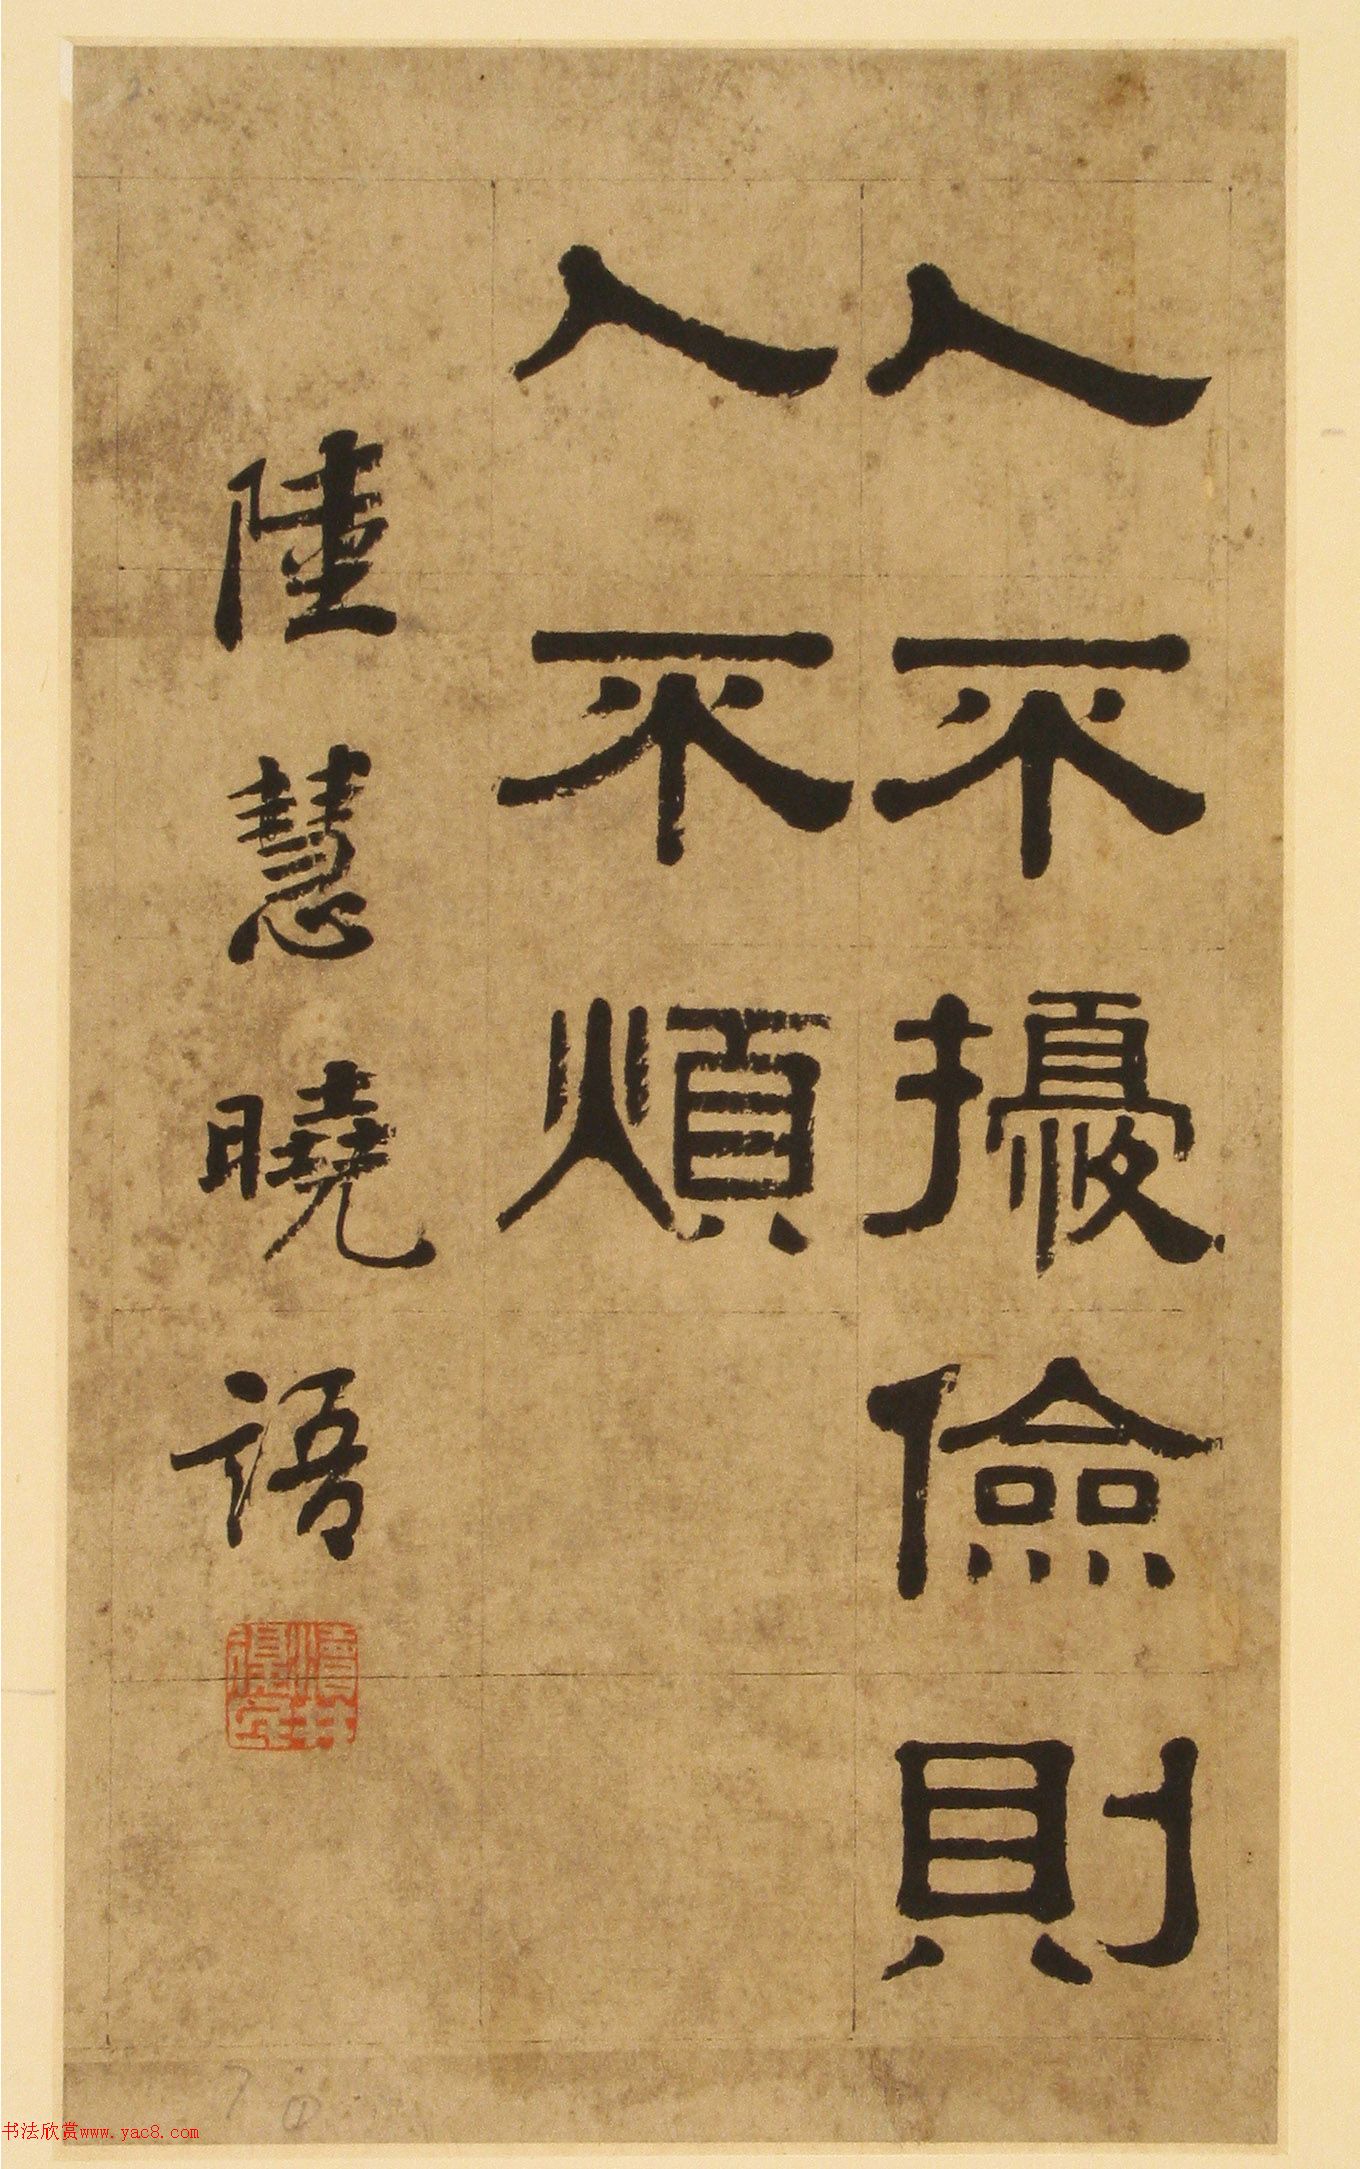 人不擾儉則
人不煩
陸慧曉語
瀆井復民
书法欣赏www.yac8.com